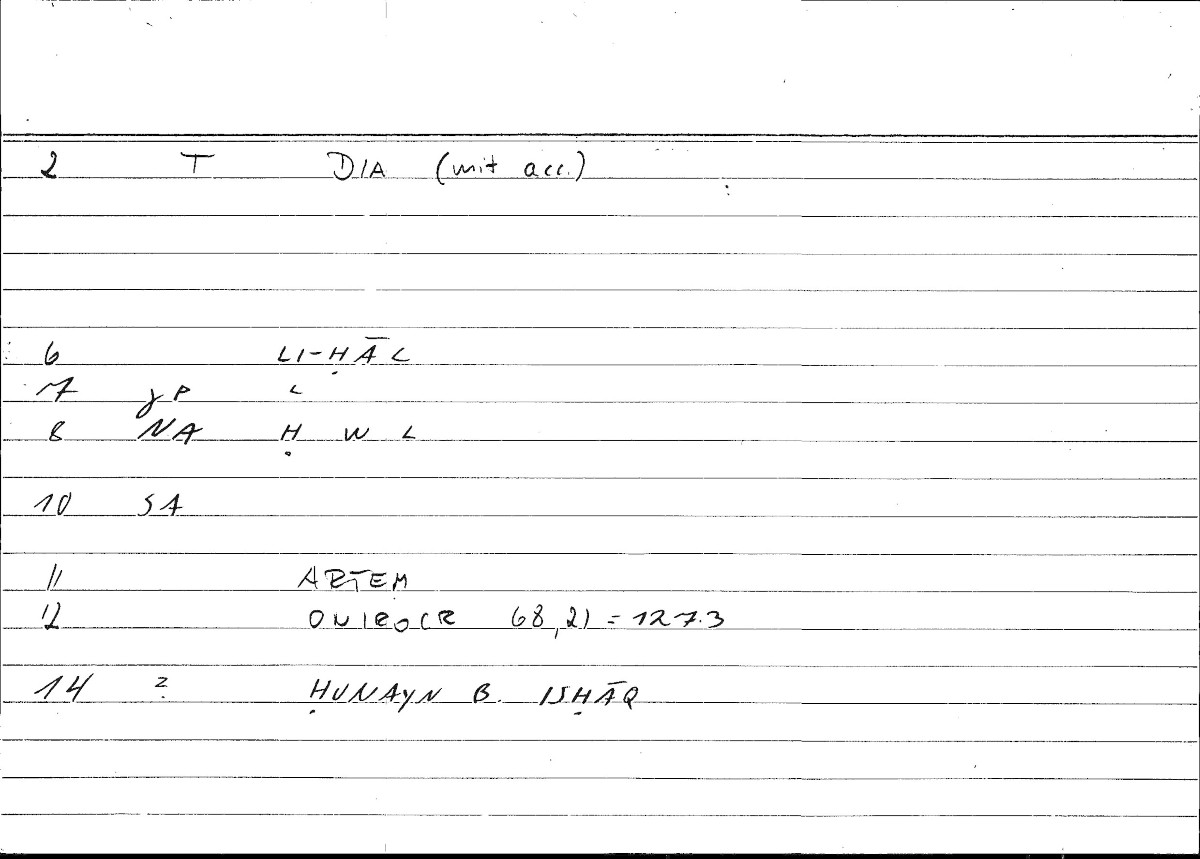 2 T DIA (mit acc.)
6 LI-ḤĀL
7 yP L
8 NA Ḥ W L
10 SA
11 ARTEM
12 ONIROCR 68,21 = 127.3
14 2 ḤUNAYN B. ISḤĀQ